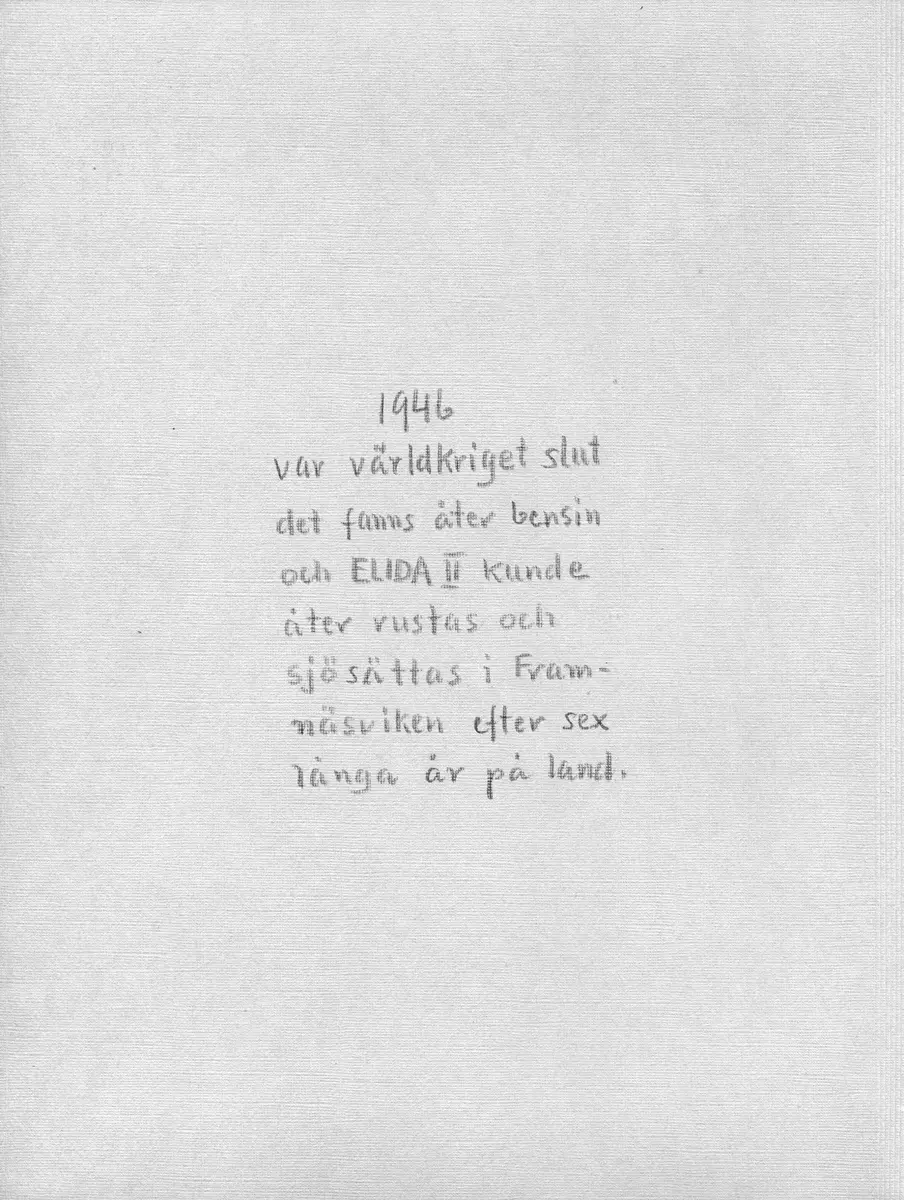 1946
var världkriget slut
det fanns åter bensin
och ELIDA II kunde
åter rustas och
sjösättas i Fram-
näsviken efter sex
långa år på land.